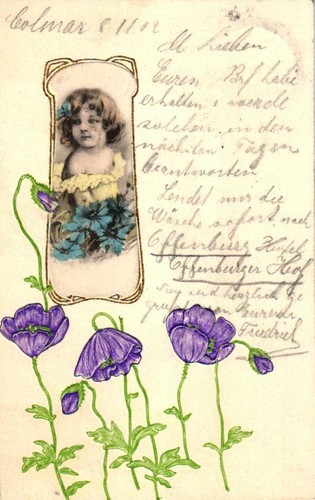 Colmar 8 11 02
M Lieben
Euren Brf habe
erhalten u werde
solchen in den
nächsten Tagen
beantworten
Sendet mir die
Wäsche sofort nach
Offenburg Hotel
Offenburger Hof
Seid herzlich ge
grüßt von Eurem
Friedrich